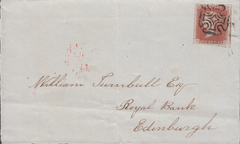 William Turnbull Esq
Royal Bank
Edinburgh